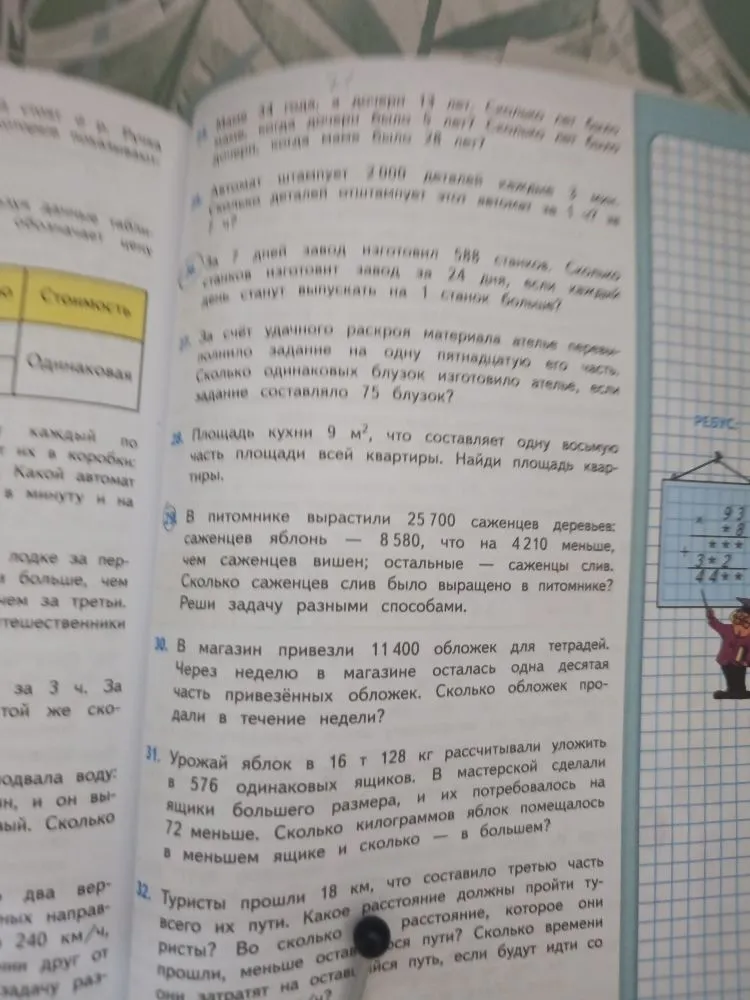 стоит
Ручка
обозначает цену
Стоимость
Одинаковая
каждый по
их в коробки
Какой автомат
в минуту и на
лодке за пер-
больше, чем
чем за третьи.
за 3 ч. За
той же ско-
воду:
и он вы-
Сколько
два вер-
240 км/ч,
друг от
Маме 34 года, а дочери 13 лет. Сколько лет было
маме, когда дочери было 5 лет? Сколько лет было
дочери, когда маме было 28 лет?
Автомат штампует 2 000 деталей каждые 3 мин.
Сколько деталей отштампует этот автомат за 1 ч?
За 7 дней завод изготовил 588 станков. Сколько
станков изготовит завод за 24 дня, если каждый
день станут выпускать на 1 станок больше?
За счёт удачного раскроя материала ателье перевы-
полнило задание на одну пятнадцатую его часть.
Сколько одинаковых блузок изготовило ателье, если
задание составляло 75 блузок?
28. Площадь кухни 9 м², что составляет одну восьмую
часть площади всей квартиры. Найди площадь квар-
тиры.
29. В питомнике вырастили 25 700 саженцев деревьев:
саженцев яблонь — 8 580, что на 4 210 меньше,
чем саженцев вишен; остальные — саженцы слив.
Сколько саженцев слив было выращено в питомнике?
Реши задачу разными способами.
30. В магазин привезли 11 400 обложек для тетрадей.
Через неделю в магазине осталась одна десятая
часть привезённых обложек. Сколько обложек про-
дали в течение недели?
31. Урожай яблок в 16 т 128 кг рассчитывали уложить
в 576 одинаковых ящиков. В мастерской сделали
ящики большего размера, и их потребовалось на
72 меньше. Сколько килограммов яблок помещалось
в меньшем ящике и сколько — в большем?
32. Туристы прошли 18 км, что составило третью часть
всего их пути. Какое расстояние должны пройти ту-
ристы? Во сколько расстояние, которое они
прошли, меньше пути? Сколько времени
они затратят на путь, если будут идти со
РЕБУС:
× 93
*8
+ ***
3*2
44**